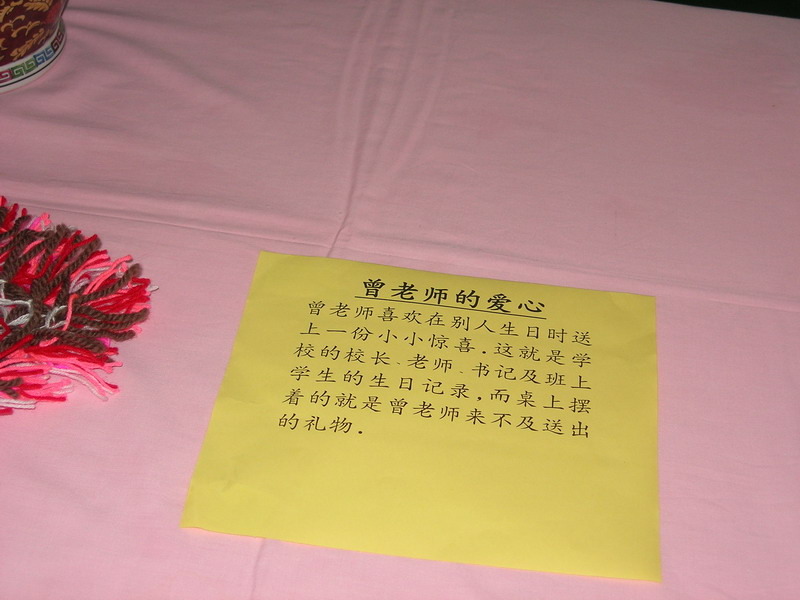 曾老师的爱心
曾老师喜欢在别人生日时送
上一份小小惊喜.这就是学
校的校长、老师、书记及班上
学生的生日记录,而桌上摆
着的就是曾老师来不及送出
的礼物.